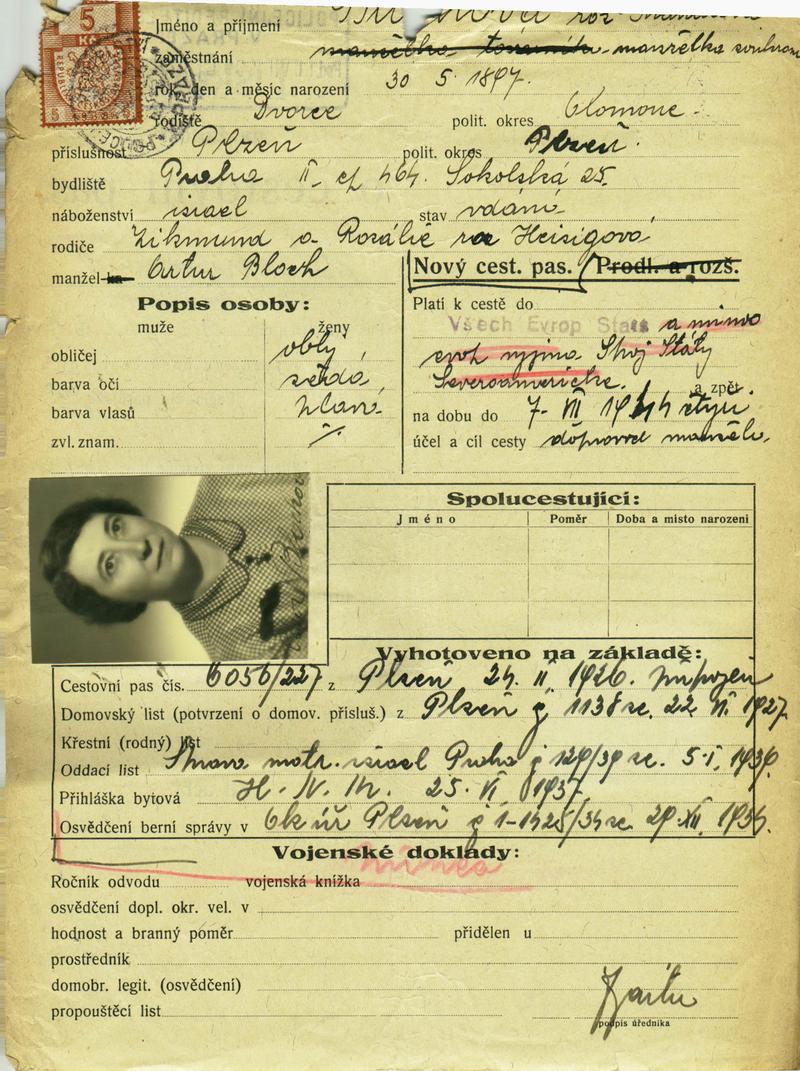 5
Kč
Jméno a příjmení roz
zaměstnání manželka továrník manželka soukrom
rok, den a měsíc narození 30 5. 1897.
rodiště Dvorce polit. okres Olomouc.
příslušnost Plzeň polit. okres Plzeň.
bydliště Praha II čp 464. Sokolská 25.
náboženství israel stav vdaná
rodiče Zikmund a Rozálie roz Heisigova
manžel-ka Artur Bloch
Nový cest. pas. Prodl. a rozš.
Popis osoby:
muže ženy
obličej oblý
barva očí šedá
barva vlasů hlavě
zvl. znam. ·/.
Platí k cestě do
Všech Evrop Států a mimo
Spoj Státy
Severoamerické. a zpět.
na dobu do 7. VII 19 čtyři
účel a cíl cesty doprovod manžela.
Spolucestující:
Jméno Poměr Doba a místo narození
Vyhotoveno na základě:
Cestovní pas čís. 6056/227 z Plzeň 24. II. 1926.
Domovský list (potvrzení o domov. přísluš.) z Plzeň č 1138 ze. 22 VI. 1927.
Křestní (rodný) list
Oddací list Správa matr. israel Praha č 129/39 ze. 5. I. 1939.
Přihláška bytová 25. VI 1937
Osvědčení berní správy v Plzeň č 1-1425/34 ze 29. XII. 1934.
Vojenské doklady:
Ročník odvodu vojenská knížka
osvědčení dopl. okr. vel. v
hodnost a branný poměr přidělen u
prostředník
domobr. legit. (osvědčení)
propouštěcí list
podpis úředníka